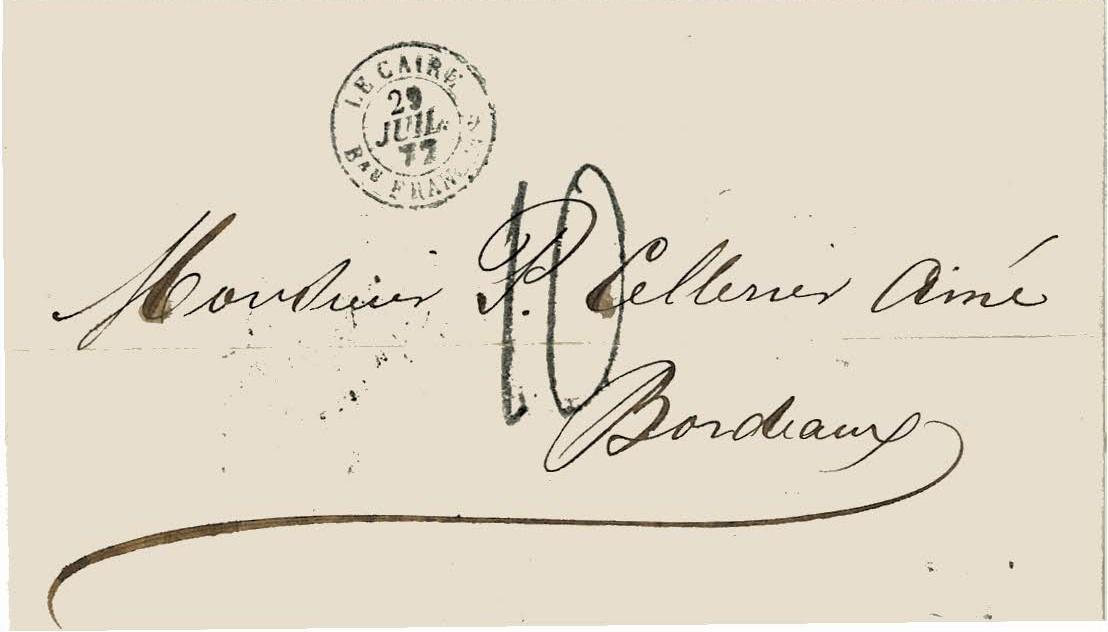 LE CAIRE
29
JUIL.
77
Bau FRANÇAIS
10
Monsieur P. Pellerier Ainé
Bordeaux